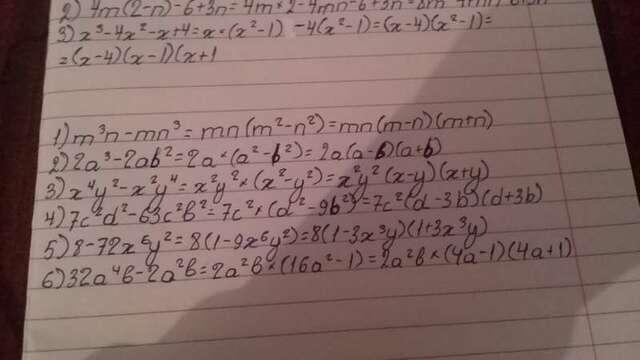 2) 4m(2-n)-6+3n=4m×2-4mn-6+3n=8m
3) x³-4x²-x+4=x×(x²-1) -4(x²-1)=(x-4)(x²-1)=
=(x-4)(x-1)(x+1
1) m³n-mn³=mn(m²-n²)=mn(m-n)(m+n)
2) 2a³-2ab²=2a×(a²-b²)=2a(a-b)(a+b)
3) x⁴y²-x²y⁴=x²y²×(x²-y²)=x²y²(x-y)(x+y)
4) 7c²d²-63c²b²=7c²×(d²-9b²)=7c²(d-3b)(d+3b)
5) 8-72x⁶y²=8(1-9x⁶y²)=8(1-3x³y)(1+3x³y)
6) 32a⁴b-2a²b=2a²b×(16a²-1)=2a²b×(4a-1)(4a+1)